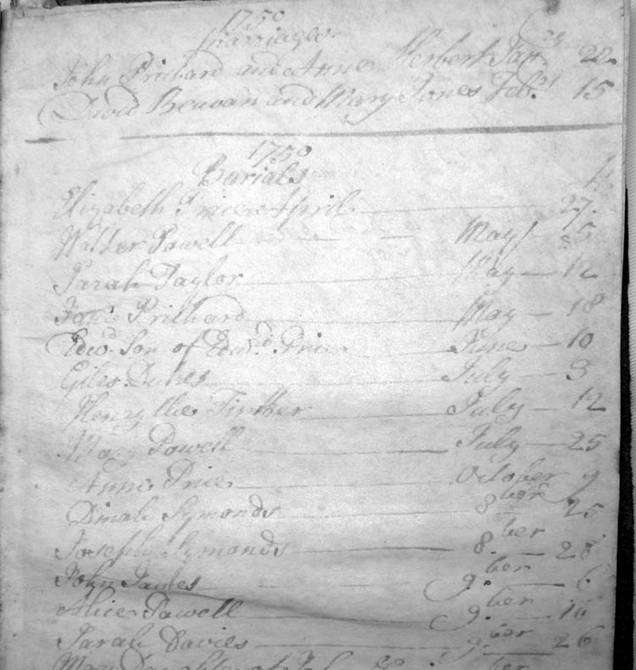 1750
Marriages
John Prichard and Anne Herbert Jan 22
David Beavan and Mary Jones Feb. 15
1750
Burials
Elizabeth Price April 27
Walter Powell May 5
Sarah Taylor May 12
Prichard May 18
Edwd. Son of Edwd. Price June 10
Giles July 3
Henry the Tinker July 12
Mary Powell July 25
Anne Price October 9
Dinah Symonds 8ber 25
Joseph Symonds 8.ber 28
John 9.ber 6
Alice Powell 9.ber 16
Sarah Davies 9.ber 26